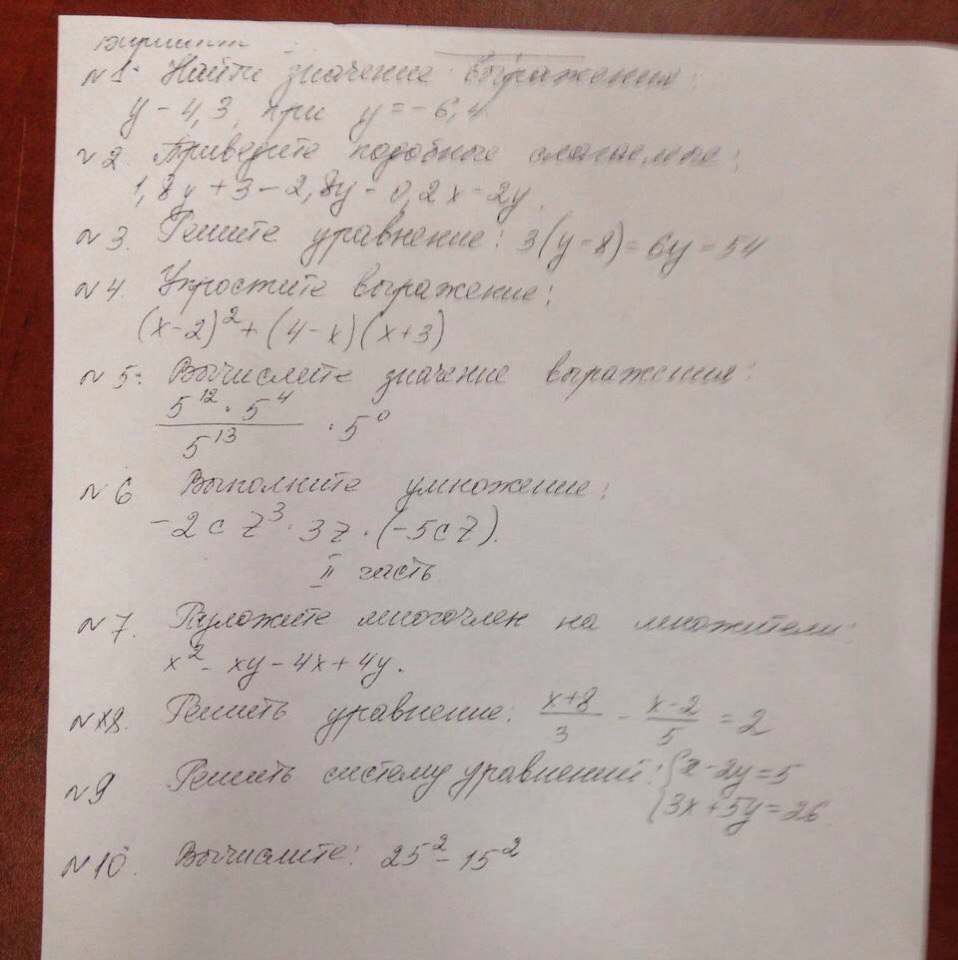 вариант
№1. Найти значение выражения:
y - 4,3, при y = -6,4
№2. Приведите подобные слагаемые:
1,8y + 3 - 2,8y - 0,2x - 2y.
№3. Решите уравнение: 3(y-8) = 6y = 54
№4. Упростите выражение:
(x-2)² + (4-x)(x+3)
№5. Вычислите значение выражения:
5¹² · 5⁴ / 5¹³ · 5⁰
№6 Выполните умножение:
-2cz³ · 3z · (-5cz).
II часть
№7. Разложите многочлен на множители:
x² - xy - 4x + 4y.
№8. Решить уравнение. (x+8)/3 - (x-2)/5 = 2
№9 Решить систему уравнений: { x - 2y = 5
3x + 5y = 26
№10. Вычислите: 25² - 15²